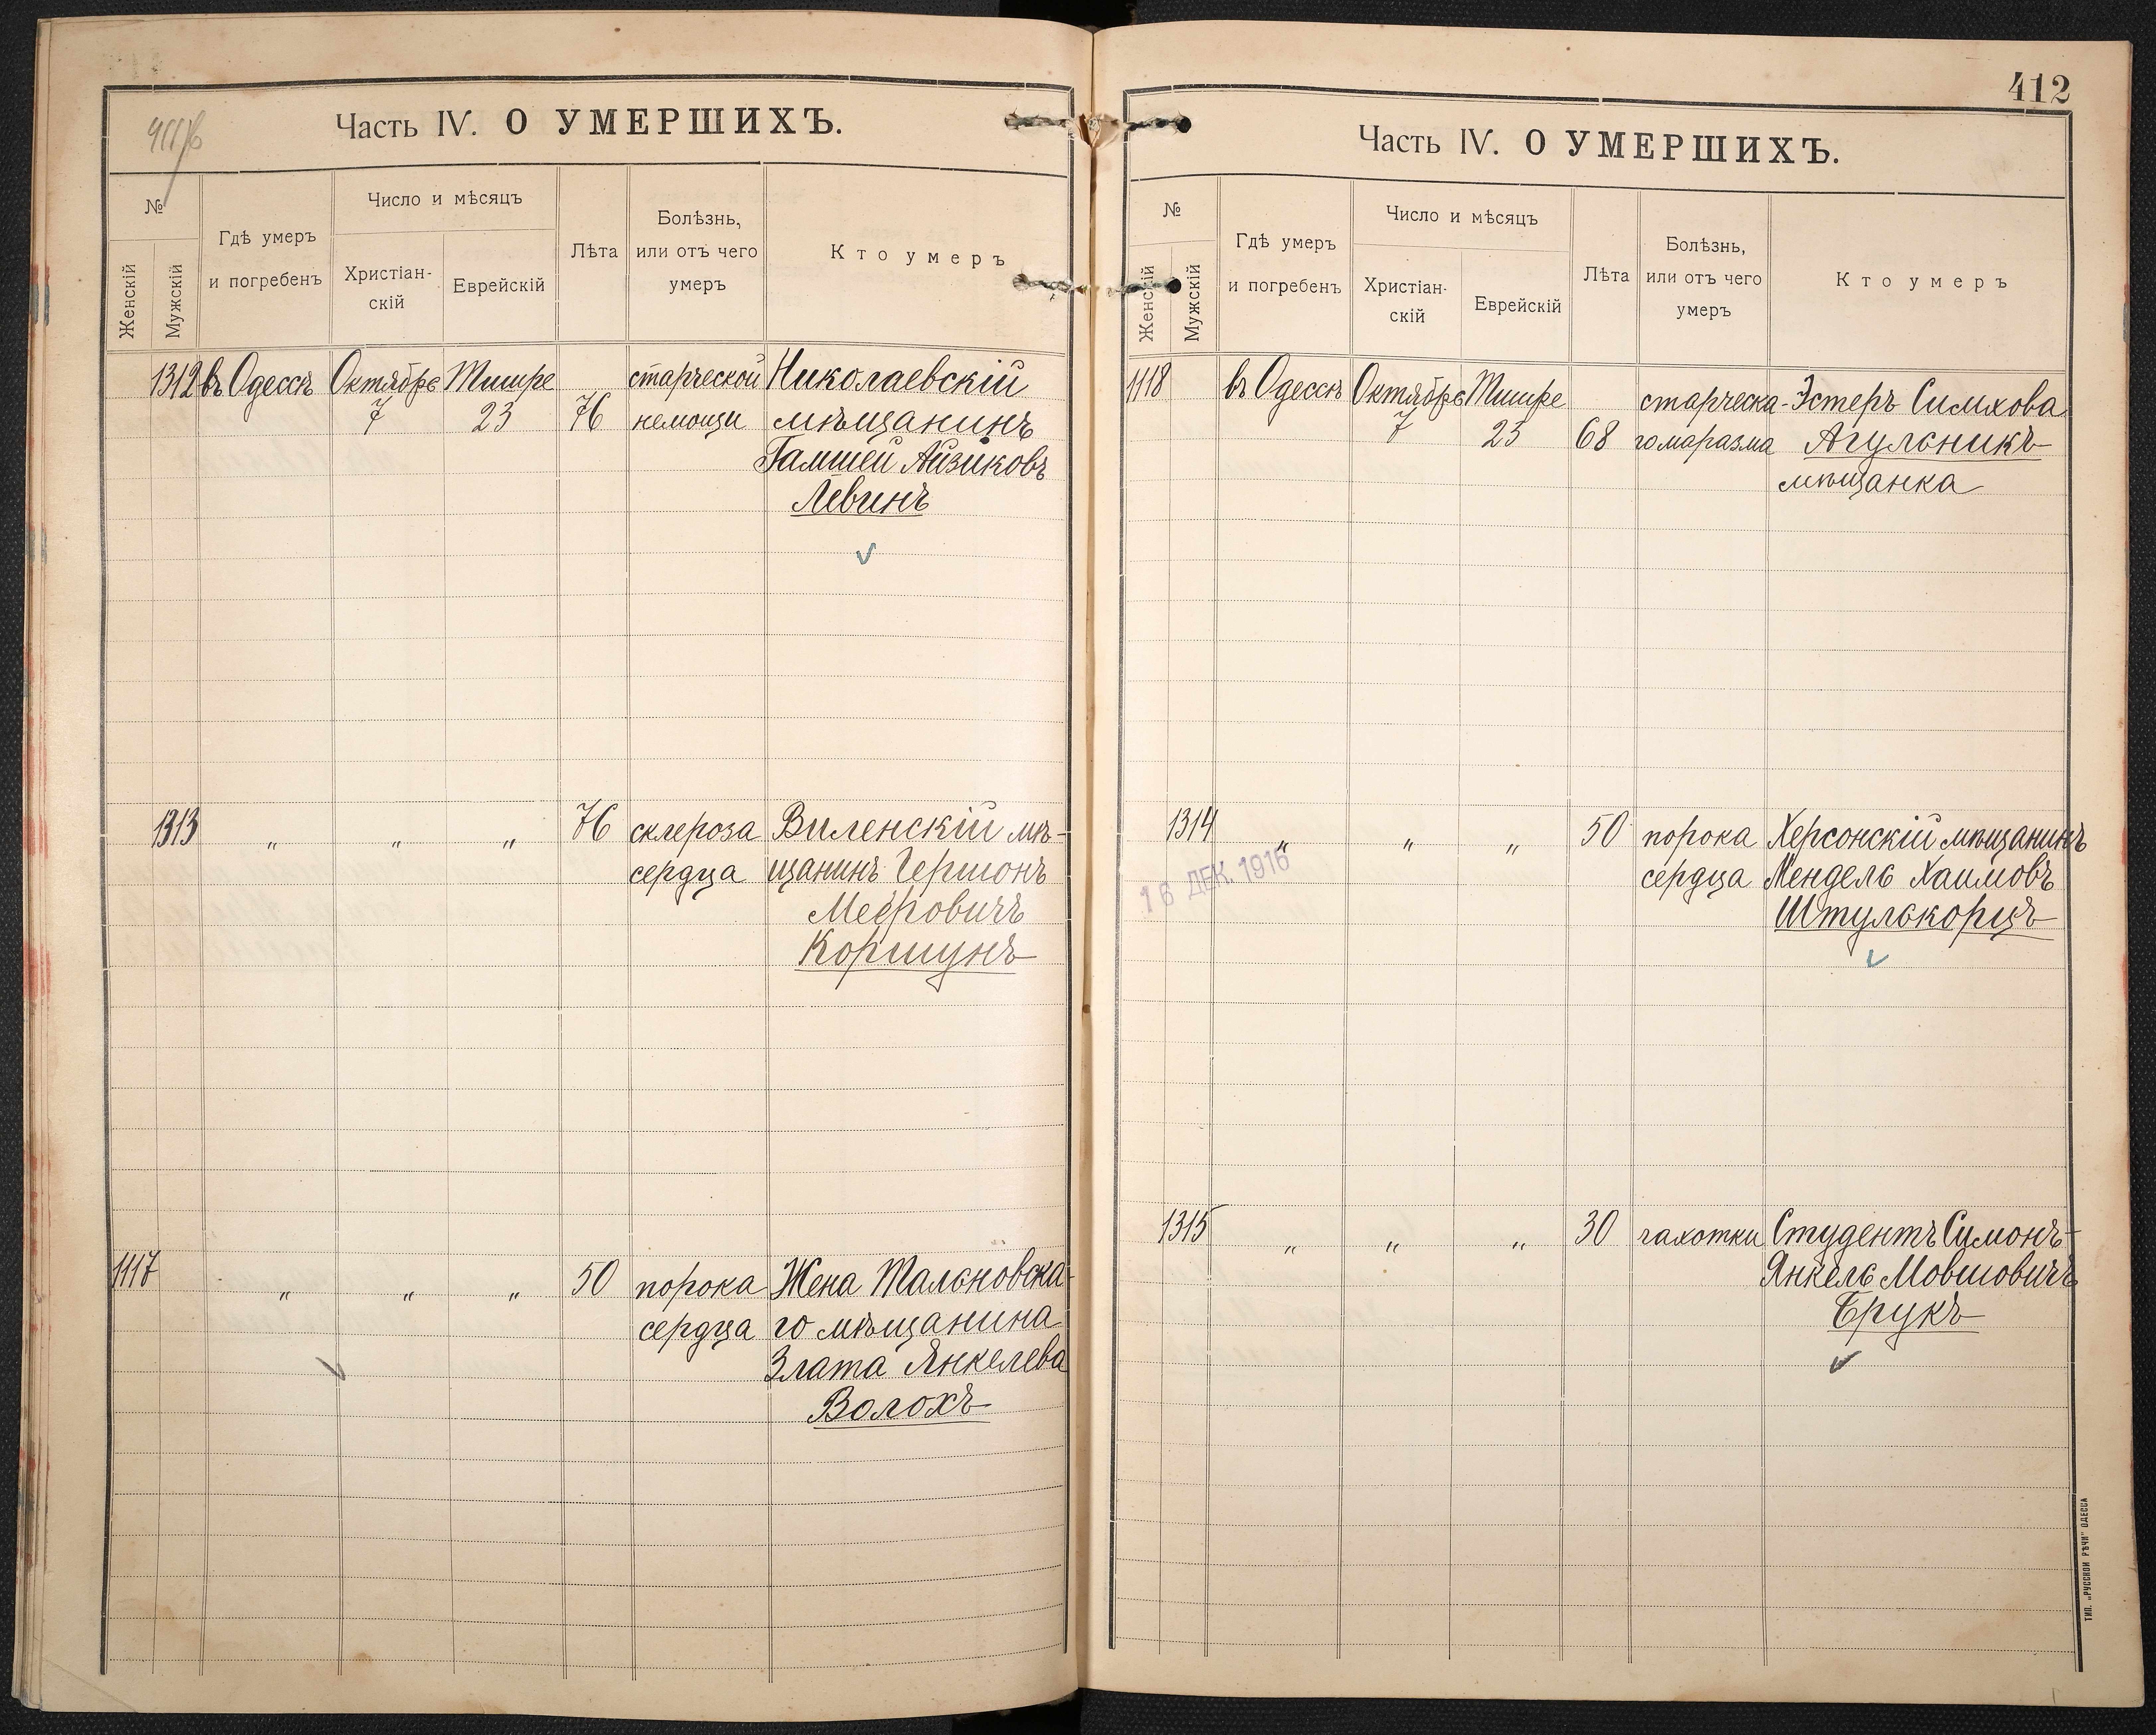 Часть IV. О УМЕРШИХЪ.
№
Женскій
Мужскій
Гдѣ умеръ
и погребенъ
Число и мѣсяцъ
Христіан-
скій
Еврейскій
Лѣта
Болѣзнь,
или отъ чего
умеръ
Кто умеръ
1312 въ Одессѣ Октября Тишре старческой Николаевскій
7 23 76 немощи мѣщанинъ
Гамшей Айзиковъ
Левинъ
1313 " " " 76 склероза Виленскій мѣ-
сердца щанинъ Гершонъ
Мееровичъ
Коршунъ
1117 " " " 50 порока Жена Тальновска-
сердца го мѣщанина
Злата Янкелева
Волохъ
412
Часть IV. О УМЕРШИХЪ.
№
Женскій
Мужскій
Гдѣ умеръ
и погребенъ
Число и мѣсяцъ
Христіан-
скій
Еврейскій
Лѣта
Болѣзнь,
или отъ чего
умеръ
Кто умеръ
1118 въ Одессѣ Октября Тишре старческа- Эстеръ Симхова
7 23 68 го маразма Агульникъ
мѣщанка
1314 " " " 50 порока Херсонскій мѣщанинъ
16 ДЕК. 1916
сердца Мендель Хаимовъ
Штулькорцъ
1315 " " " 30 чахотки Студентъ Симонъ-
Янкель Мовшовичъ
Брукъ
ТИП. „РУССКОЙ РѢЧИ" ОДЕССА